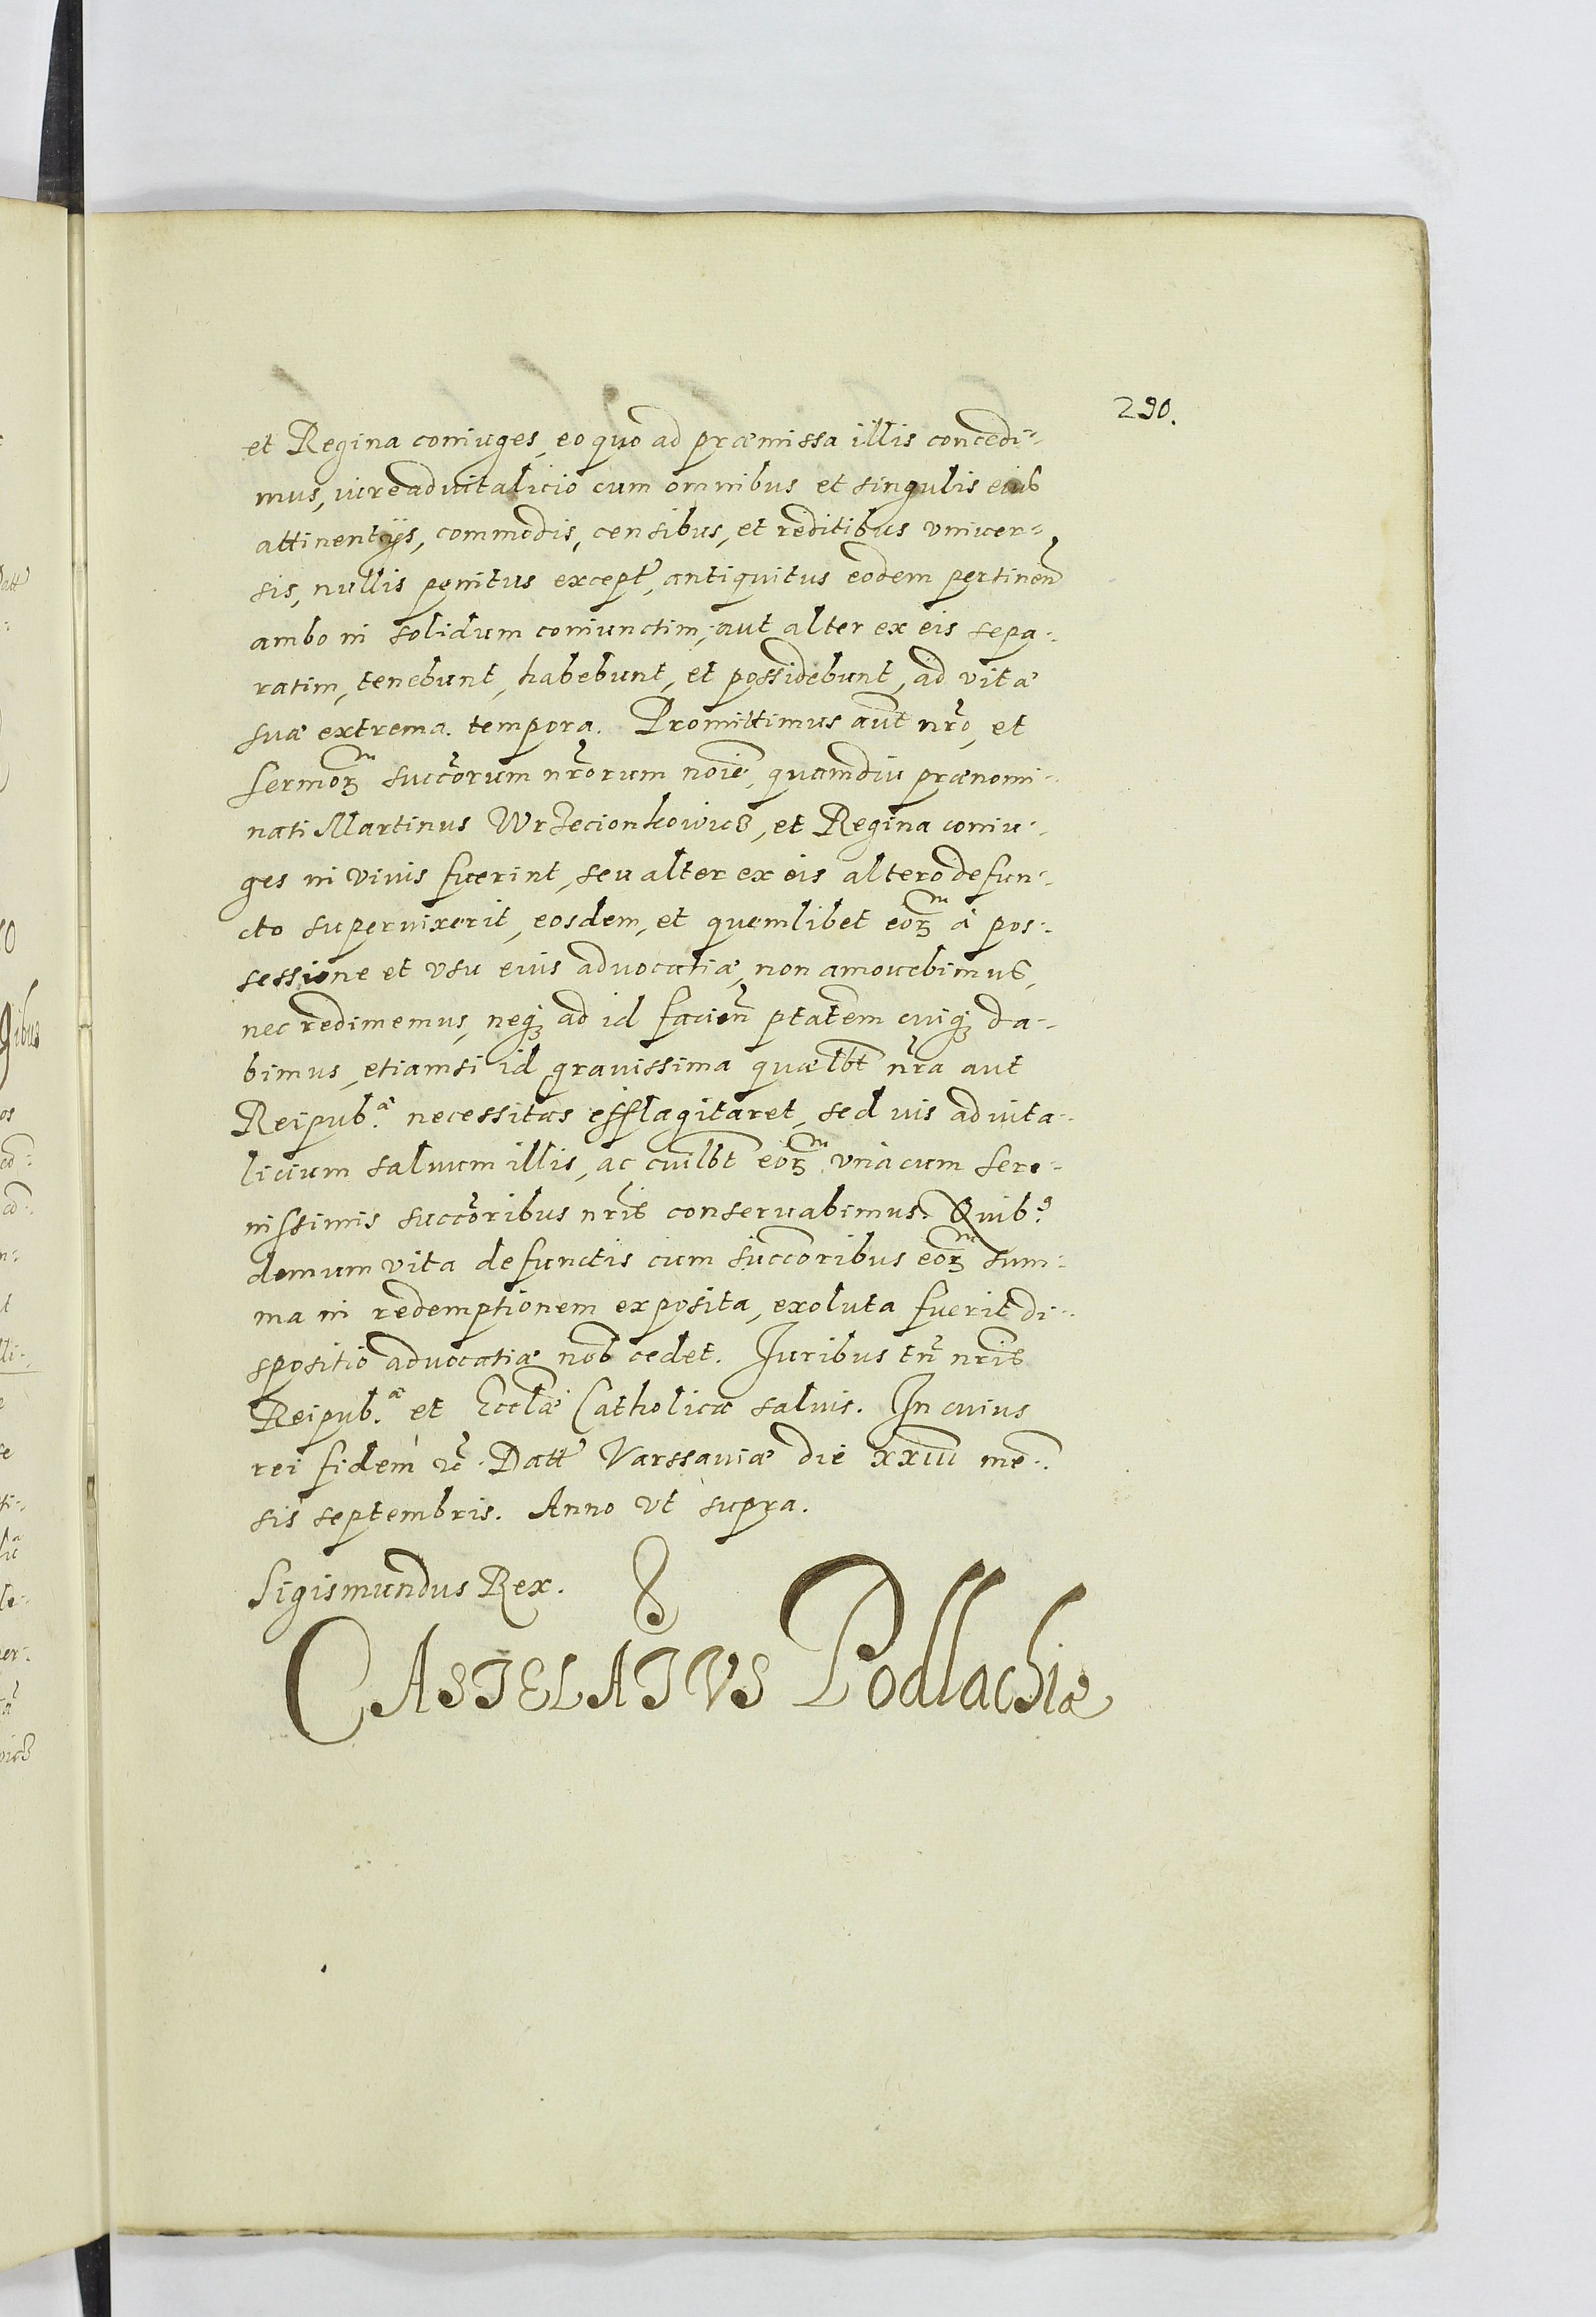 290.
et Regina coniuges, eo quo ad præmissa illis concedi-
mus, iure aduitalicio cum omnibus et singulis eius
attinentÿs, commodis, censibus, et reditibus vniuer-
sis, nullis penitus except, antiquitus eodem pertinen
ambo in solidum coniunctim, aut alter ex eis sepa-
ratim, tenebunt, habebunt, et possidebunt, ad vitæ
suæ extrema tempora. Promittimus aut nro, et
sermorꝫ succorum nrorum noie, quamdiu prænomi-
nati Martinus Wrzecionkowicz, et Regina coniu-
ges in viuis fuerint, seu alter ex eis altero defun-
cto superuixerit, eosdem, et quemlibet eorꝫ à pos-
sessione et vsu eius aduocatiæ, non amouebimus,
nec redimemus, neqꝫ ad id facien ptatem cuiqꝫ da-
bimus, etiamsi id grauissima quælbt nra aut
Reipub.æ necessitas efflagitaret, sed ius aduita-
licium saluum illis, ac cuilbt eorꝫ vnà cum sere-
nissimis succoribus nris conseruabimus. Quib9
demum vita defunctis cum succoribus eorꝫ sum-
ma in redemptionem exposita, exoluta fuerit di-
spositio aduocatiæ nob cedet. Iuribus tn nris
Reipub.æ et Ecclæ Catholicæ saluis. In cuius
rei fidem ꝛc. Datt Varssauiæ die xxiii me-
sis septembris. Anno vt supra.
Sigismundus Rex.
CASTELATVS Podlachiæ